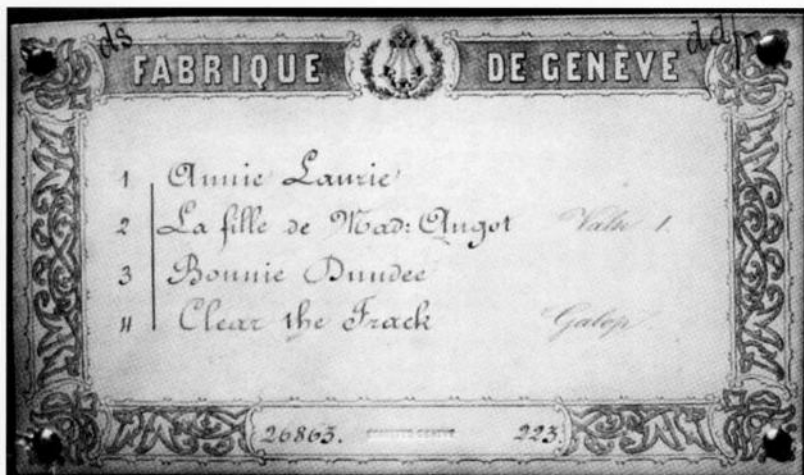 ds
FABRIQUE DE GENÈVE
1 Annie Laurie
2 La fille de Mad: Angot Valse 1.
3 Bonnie Dundee
4 Clear the Track Galop.
26863. 223.